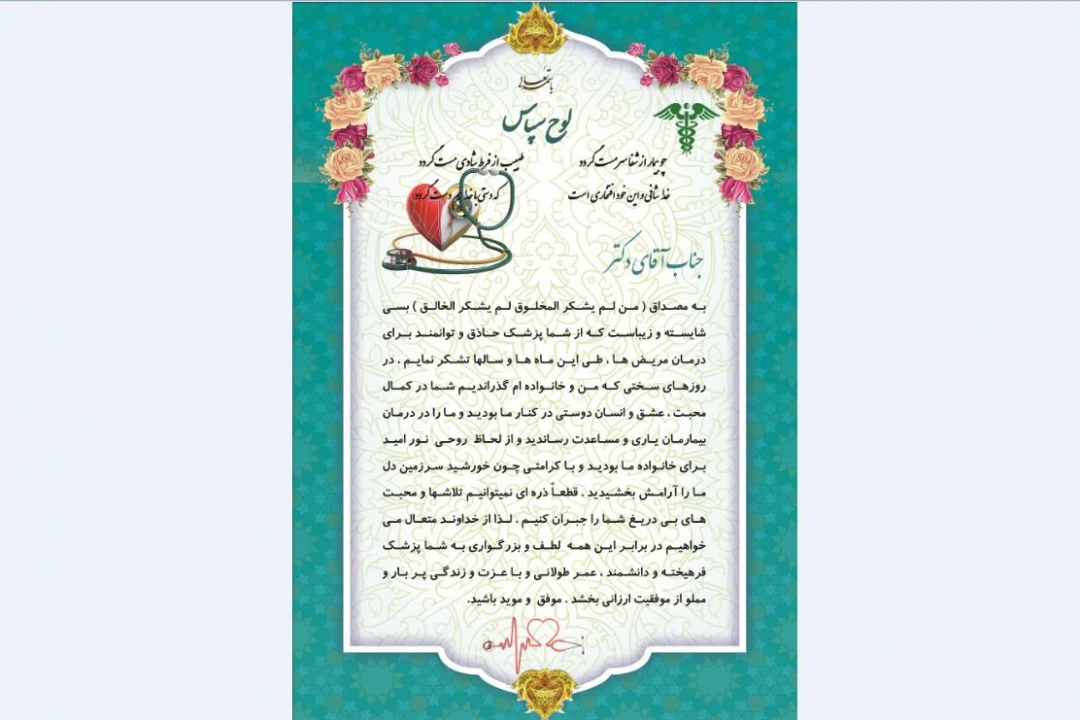 باسمه تعالی
لوح سپاس
چو بیمار از شفا سرمست گردد طبیب از فرط شادی مست گردد
خدا شافی و این خود افتخاری است که دستی با خدا دست گردد
جناب آقای دکتر
به مصداق ( من لم یشکر المخلوق لم یشکر الخالق ) بسی
شایسته و زیباست که از شما پزشک حاذق و توانمند برای
درمان مریض ها ، طی این ماه ها و سالها تشکر نمایم . در
روزهای سختی که من و خانواده ام گذراندیم شما در کمال
محبت ، عشق و انسان دوستی در کنار ما بودید و ما را در درمان
بیمارمان یاری و مساعدت رساندید و از لحاظ روحی نور امید
برای خانواده ما بودید و با کرامتی چون خورشید سرزمین دل
ما را آرامش بخشیدید . قطعاً ذره ای نمیتوانیم تلاشها و محبت
های بی دریغ شما را جبران کنیم . لذا از خداوند متعال می
خواهیم در برابر این همه لطف و بزرگواری به شما پزشک
فرهیخته و دانشمند ، عمر طولانی و با عزت و زندگی پر بار و
مملو از موفقیت ارزانی بخشد . موفق و موید باشید.